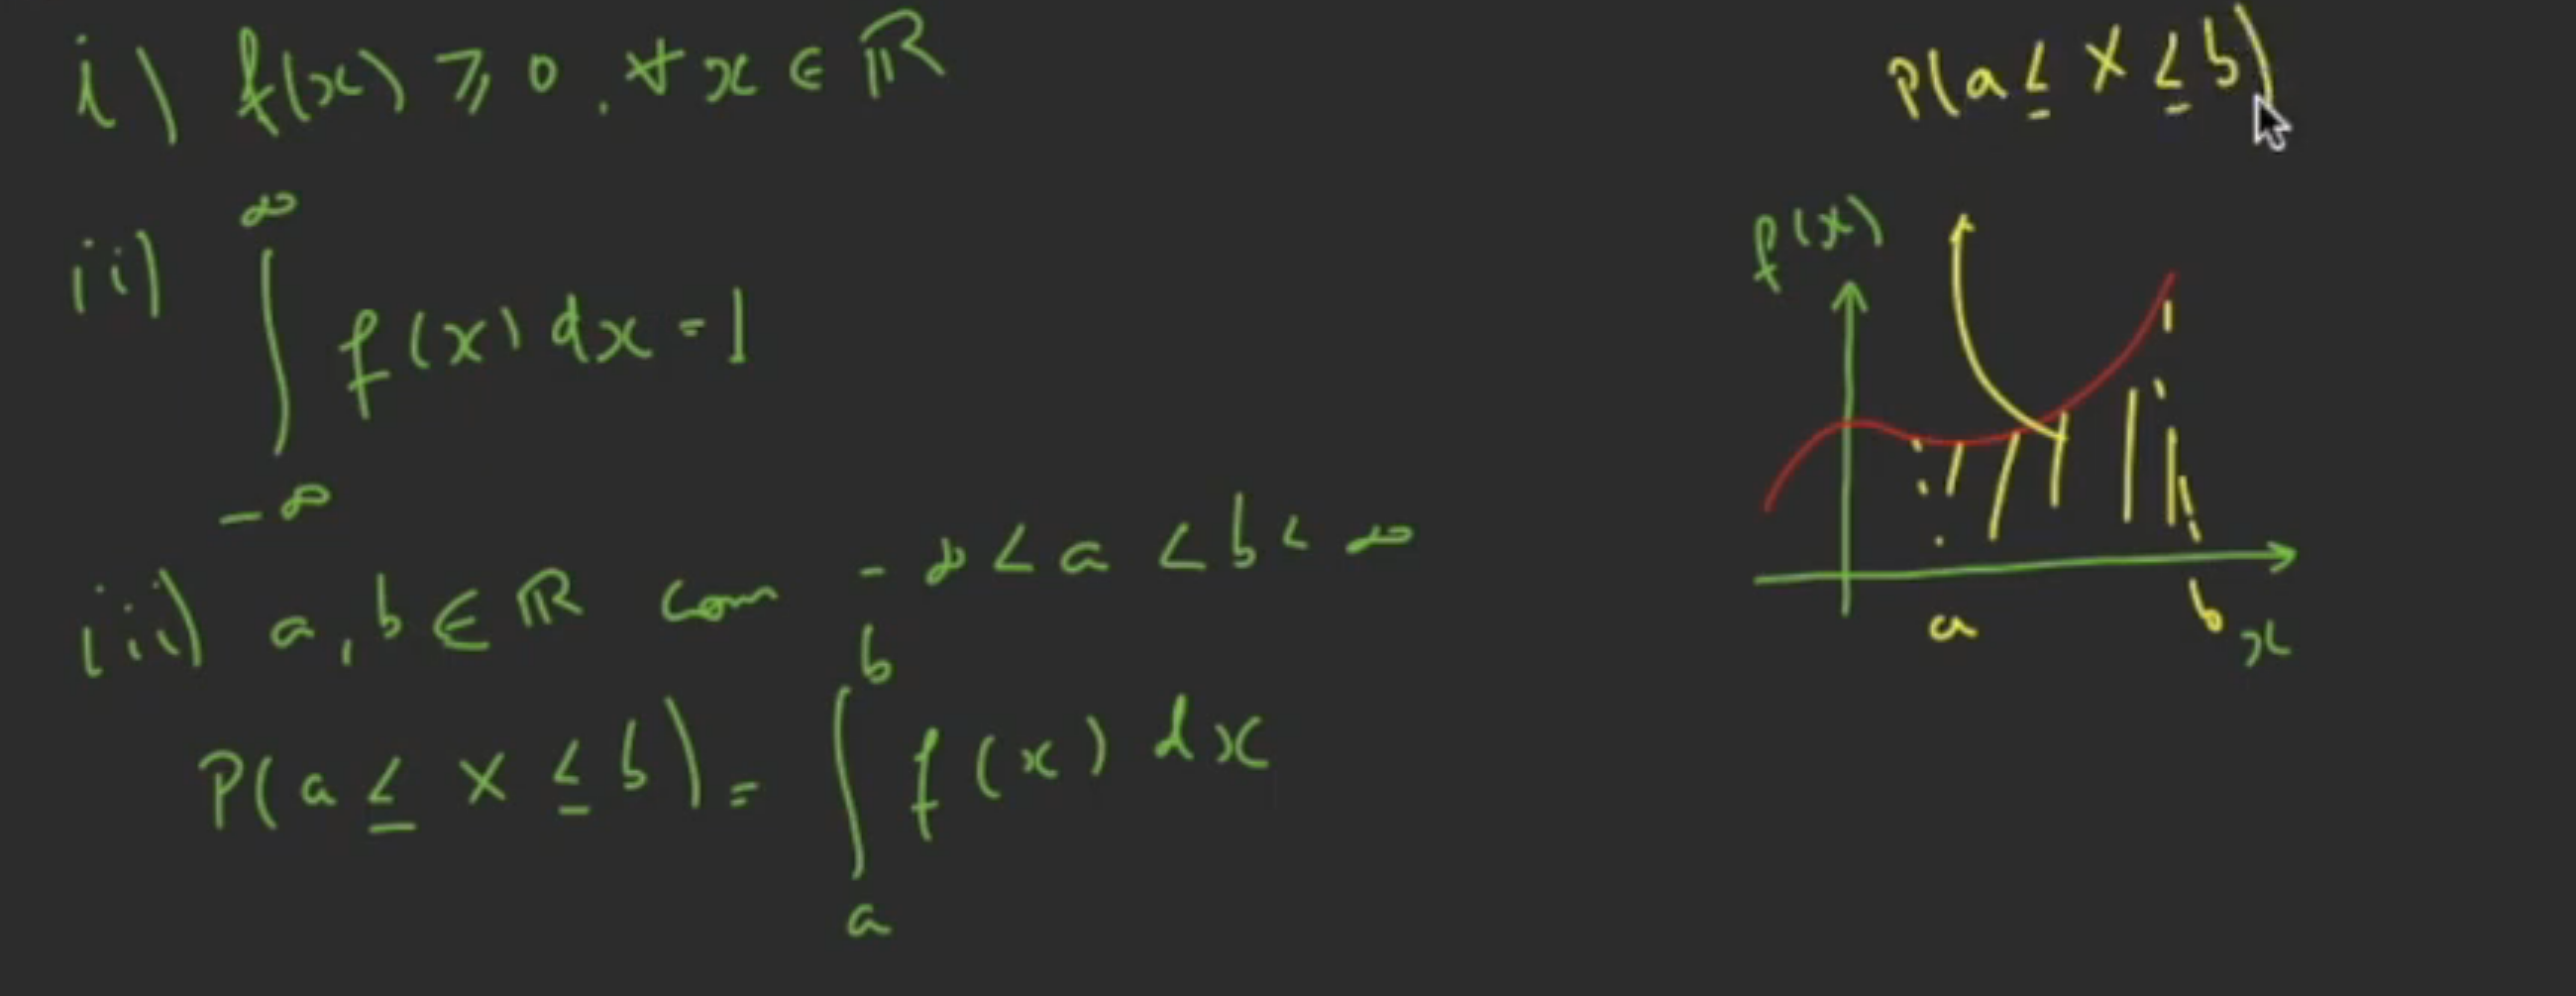 i) f(x) ⩾ 0, ∀ x ∈ ℝ
ii) ∫_{-∞}^{∞} f(x) dx = 1
iii) a, b ∈ ℝ com -∞ < a < b < ∞
P(a ≤ X ≤ b) = ∫_{a}^{b} f(x) dx
P(a ≤ X ≤ b)
f(x)
a
b
x